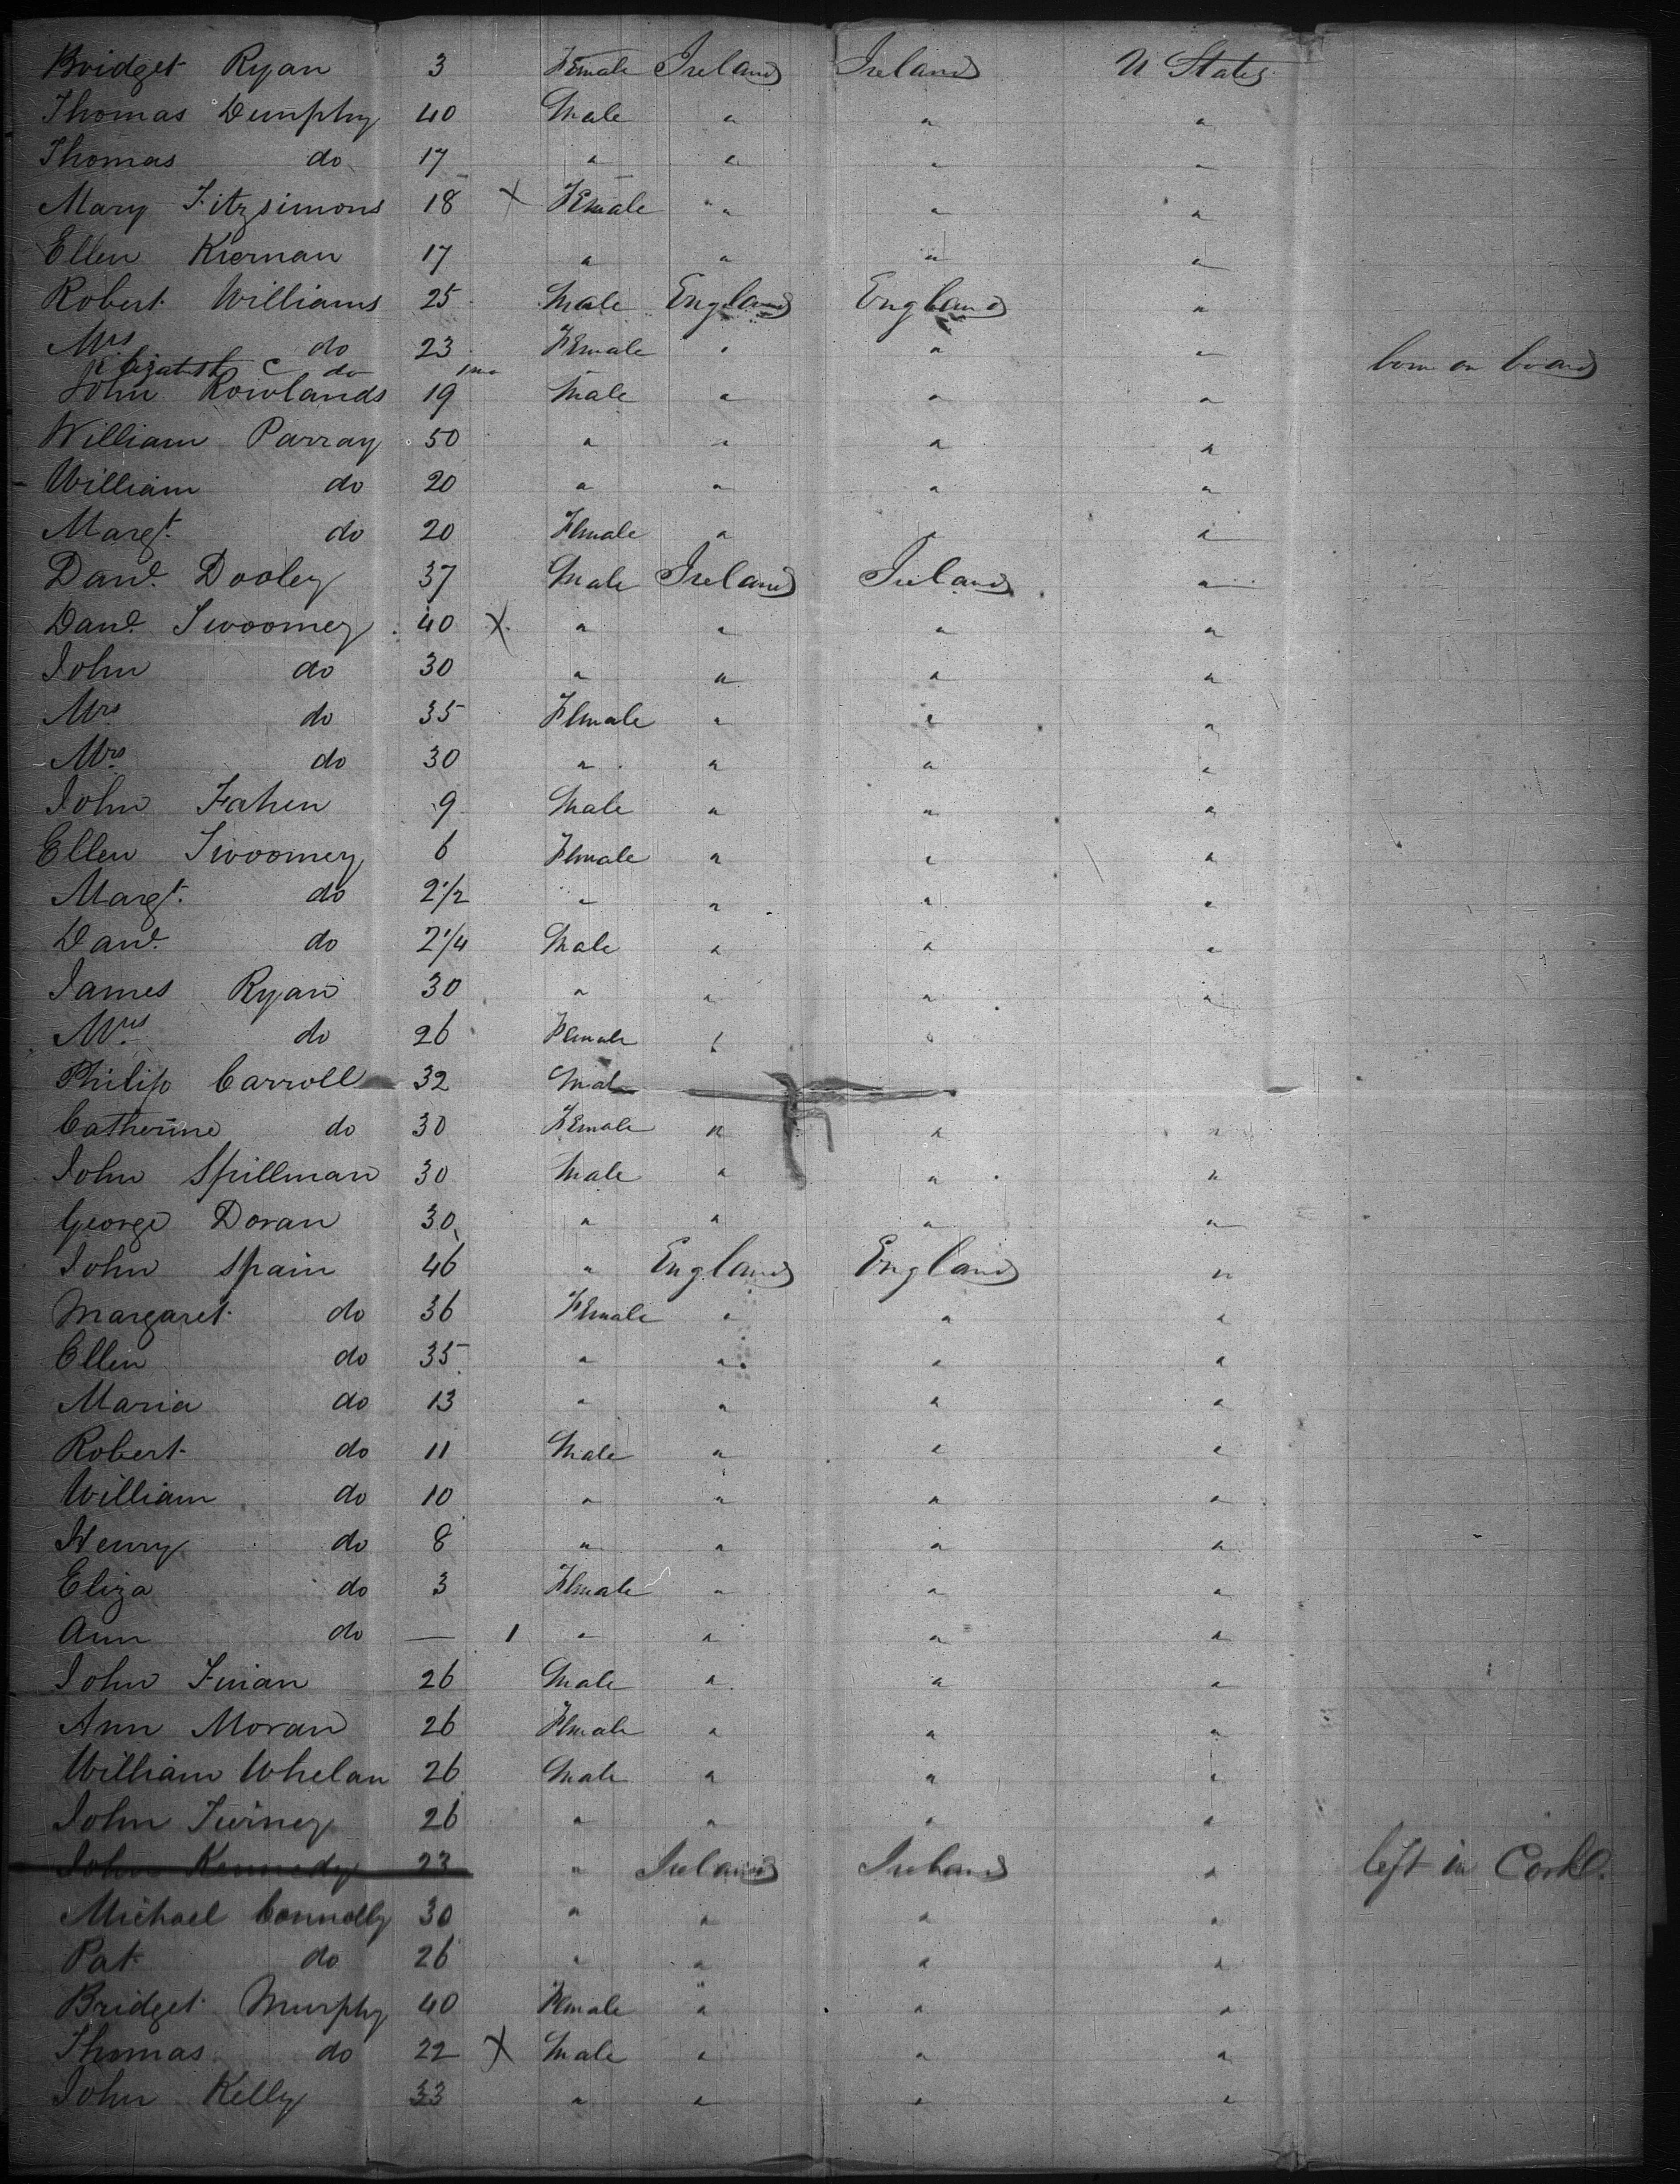 Bridget Ryan 3 Female Ireland Ireland U States
Thomas Dunphy 40 Male " " "
Thomas do 17 " " " "
Mary Fitzsimons 18 X Female " " "
Ellen Kiernan 17 " " " "
Robert Williams 25 Male England England "
Mrs do 23 Female " " "
Elizabeth C do 1 mo born on board
John Rowlands 19 Male " " "
William Parray 50 " " " "
William do 20 " " " "
Margt do 20 Female " " "
Danl. Dooley 37 Male Ireland Ireland "
Danl. Twoomey 40 X " " " "
John do 30 " " " "
Mrs do 35 Female " " "
Mrs do 30 " " " "
John Fahen 9 Male " " "
Ellen Twoomey 6 Female " " "
Margt. do 2 1/2 " " " "
Danl. do 2 1/4 Male " " "
James Ryan 30 " " " "
Mrs do 26 Female " "
Philip Carroll 32 Male
Catherine do 30 Female " " "
John Spillman 30 Male " " "
George Doran 30 " " " "
John Spain 46 " England England "
Margaret do 36 Female " " "
Ellen do 35 " " " "
Maria do 13 " " " "
Robert do 11 Male " " "
William do 10 " " " "
Henry do 8 " " " "
Eliza do 3 Female " " "
Ann do — 1 " " " "
John Finan 26 Male " " "
Ann Moran 26 Female " " "
William Whelan 26 Male " " "
John 26 " " " "
John Kennedy 23 " Ireland Ireland " left in Cork.
Michael Connolly 30 " " " "
Pat do 26 " " " "
Bridget Murphy 40 Female " " "
Thomas do 22 X Male " " "
John Kelly 33 " " " "